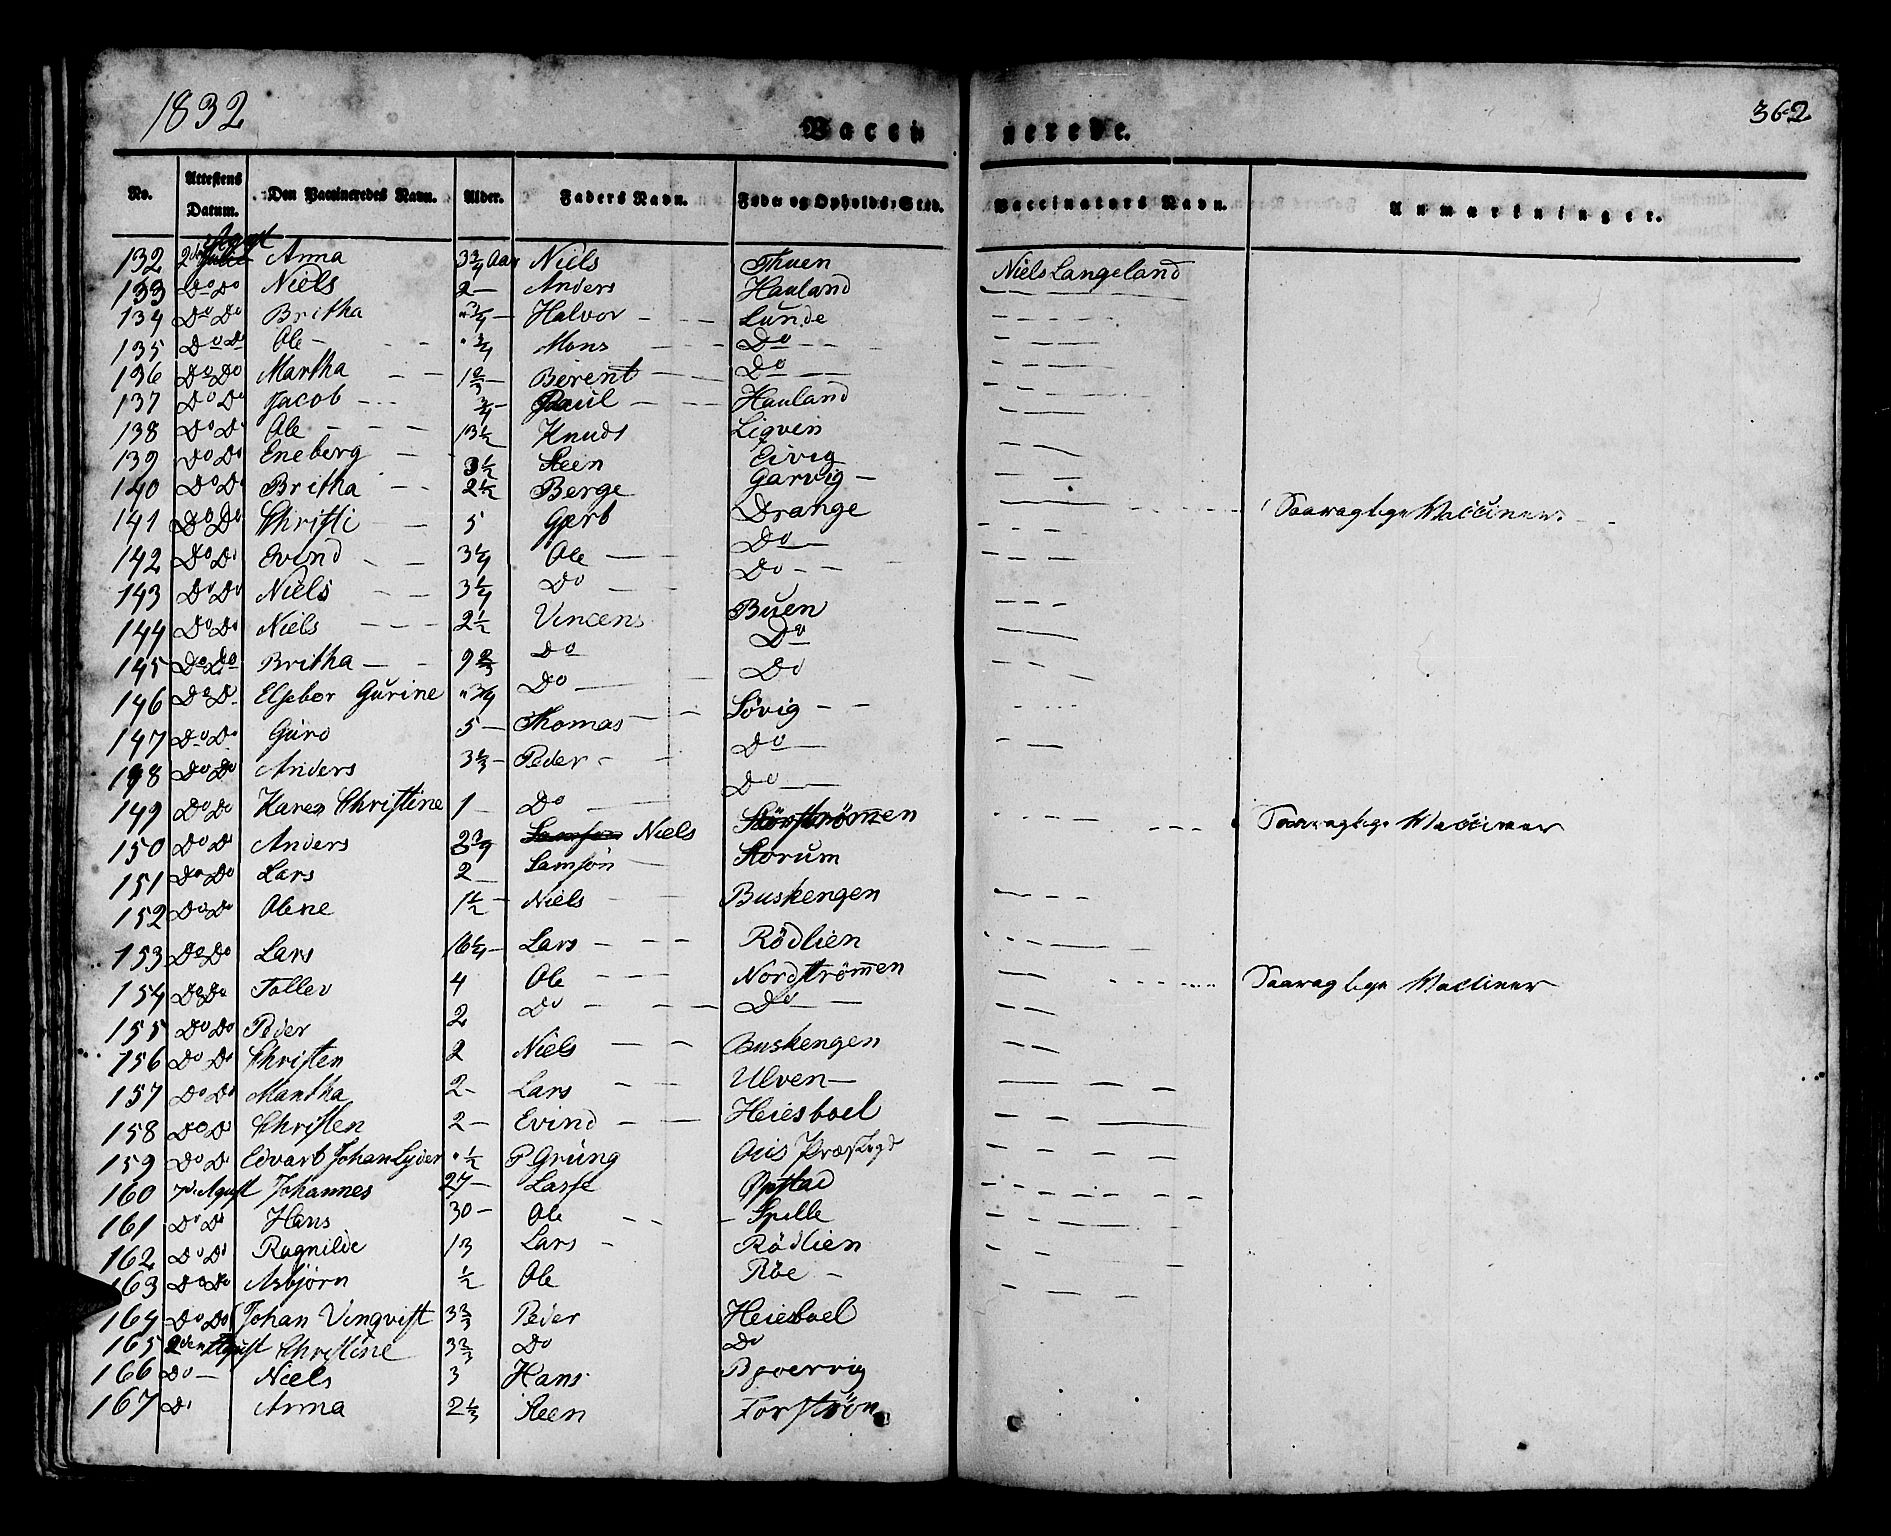 1832
362
Vaccinerede.
No. Attestens Datum. Den Vaccineredes Navn. Alder. Faders Navn. Føde- og Opholds-Sted. Vaccinateurs Navn. Anmærkninger.
132 2den Julie Agust Anna 3 3/4 Aar Niels Thuen Niels Langeland
133 Do Do Niels 2 — Anders Hauland
134 Do Do Britha " 3/4 — Halvor Lunde
135 Do Do Ole " 3/4 Mons Do
136 Do Do Martha 1 2/3 — Berent Do
137 Do Do Jacob 3/4 — Paul Hauland
138 Do Do Ole 13 1/2 Knuds Ligven
139 Do Do Eneberg 3 1/2 Steen Eivig
140 Do Do Britha 2 1/2 Berge Garvig —
141 Do Do Christi 5 Gjert Drange
142 Do Do Evind 3 1/4 Ole Do
143 Do Do Niels 3 1/4 Do Do
144 Do Do Niels 2 1/2 Vincens Buen
145 Do Do Britha 9 2/3 Do Do
146 Do Do Elsebor Gurine " 3/4 Do Do
147 Do Do Guro 5 — Thomas Søvig
148 Do Do Anders 3 1/3 — Peder Do
149 Do Do Karen Christine 1 — Do Do
150 Do Do Anders Samson Niels Størstrømen
151 Do Do Lars 2 — Samson Storum
152 Do Do Olene 1 1/2 — Niels Buskengen
153 Do Do Lars 16 1/4 — Lars Rødlien
154 Do Do Tollev 4 Ole Nordstrømen
155 Do Do Peder 2 Do Do
156 Do Do Christen 2 Niels Buskengen
157 Do Do Martha 2 - Lars Ulven —
158 Do Do Christen 2 — Evind Heiesboel
159 Do Do Edvart Johan Lyder " 1/2 P. Grung Ous Præstegd
160 7de Agust Johannes 27 — Lasse
161 Do Do Hans 30 — Ole Spille
162 Do Do Ragnilde 13 Lars Rødlien
163 Do Do Asbjørn 1/2 Ole Røe —
164 Do Do Johan Vinqvist 3 2/3 Peder Heiesboel
165 2den Agust Christine 3 2/3 Do Do
166 Do — Niels 3 Hans
167 Do Anna 2 1/3 Steen Forstrøn